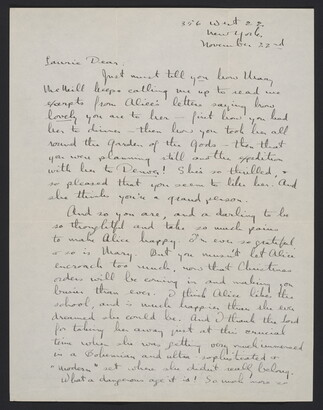 356 West 22
New York.
November 22nd
Laurie Dear,
Just must tell you how Mary
McNeill keeps calling me up to read me
exerpts from Alice's letters saying how
lovely you are to her – first how you had
her to dinner – then how you took her all
round the Garden of the Gods – then that
you were planning still another expedition
with her to Denver! She's so thrilled, &
so pleased that you seem to like her. And
she thinks you're a grand person.
And so you are, and a darling to be
so thoughtful and take so much pains
to make Alice happy. I'm ever so grateful
& so is Mary. But you mustn't let Alice
encroach too much, now that Christmas
orders will be coming in and making you
busier than ever. I think Alice likes the
school, and is much happier than she ever
dreamed she could be. And I thank the Lord
for taking her away just at this crucial
time when she was getting very much immersed
in a Bohemian and ultra-sophisticated &
"modern" set where she didn't really belong.
What a dangerous age it is! So much more so